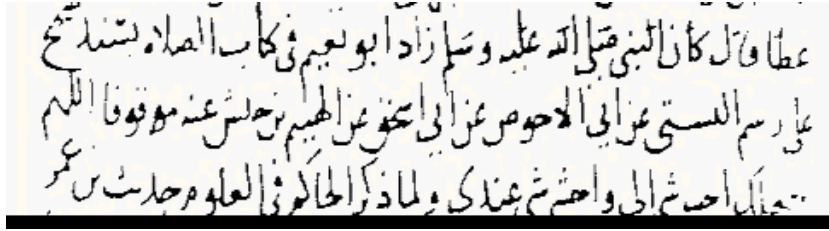 عطا قال كان النبي صلى الله عليه وسلم زاد ابو نعيم في كتاب الصلاه بسند صحيح
على رسم البستي عن ابي الاحوص عن ابي اسحق عن الهيثم بن حنش عنه موقوفا اللهم
احب شي الي واخشى شي عندي ولما ذكر الحاكم في العلوم حديث بن عمر